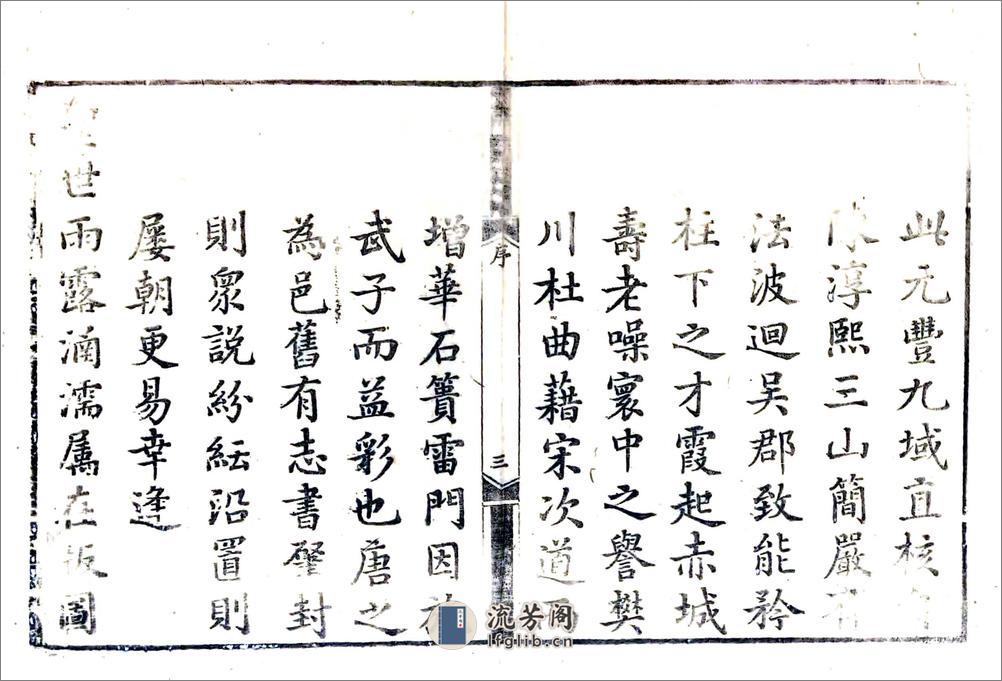 此元豐九域直核
淳熙三山簡嚴
法波迴吳郡致能矜
柱下之才霞起赤城
壽老噪寰中之譽樊
川杜曲藉宋次道而
序
三
增華石簣雷門因施
武子而益彩也唐之
為邑舊有志書肇封
則眾說紛紜沿置則
屡朝更易幸逢
世雨露湳濡屬在版圖
流芳阁
lfglib.cn